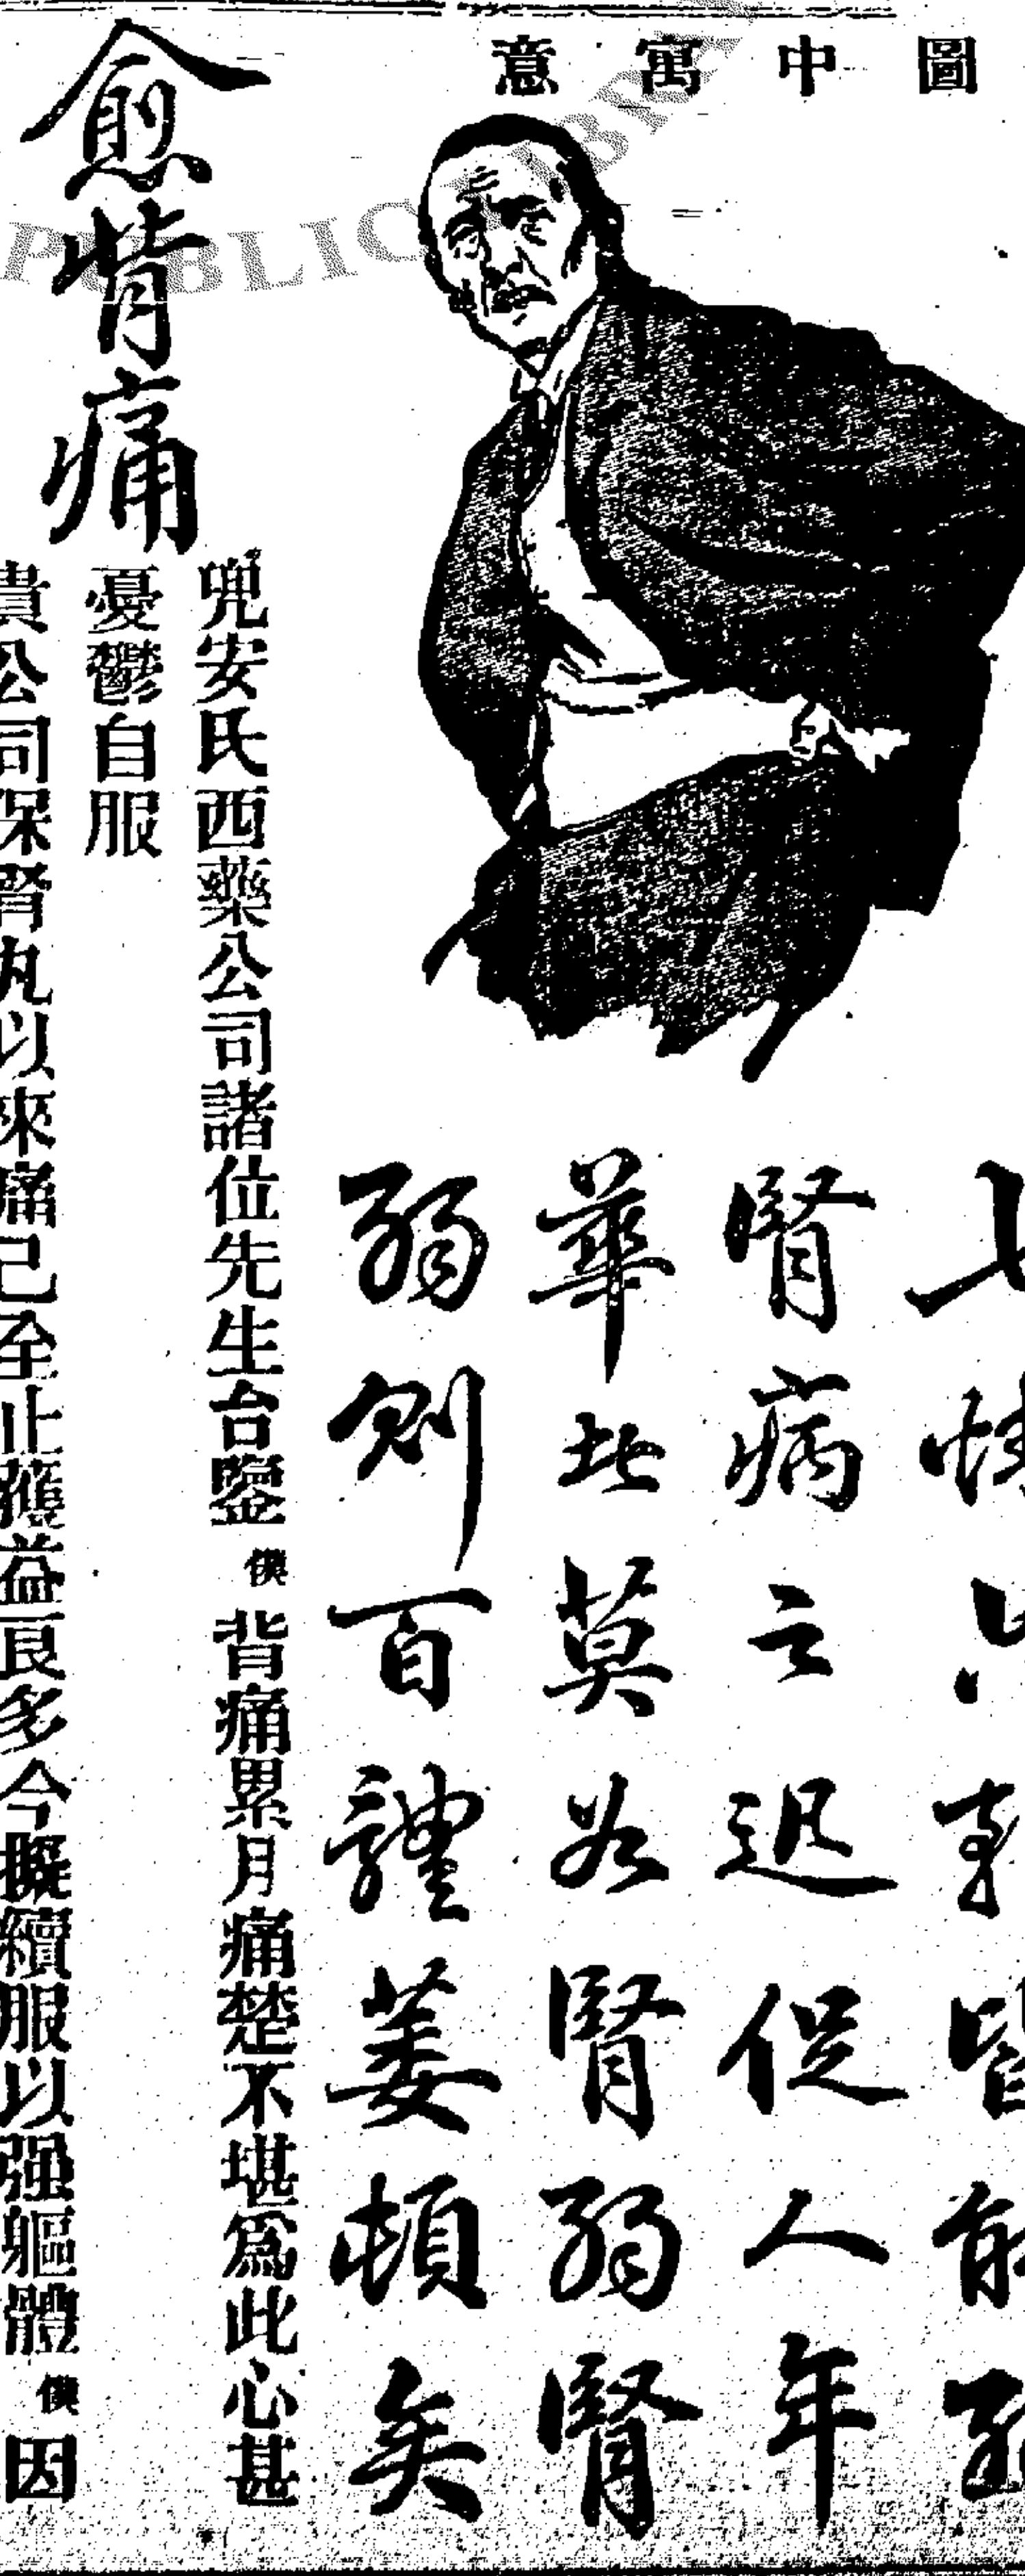 圖中寓意
七情六事皆能
腎病之迟促人年
華此莫若腎弱腎
弱則百體萎頓矣
愈背痛
兜安氏西藥公司諸位先生台鑒僕背痛累月痛楚不堪爲此心甚
憂鬱自服
貴公司保腎丸以來痛已全止獲益良多今擬續服以强軀體僕因
PUBLIC